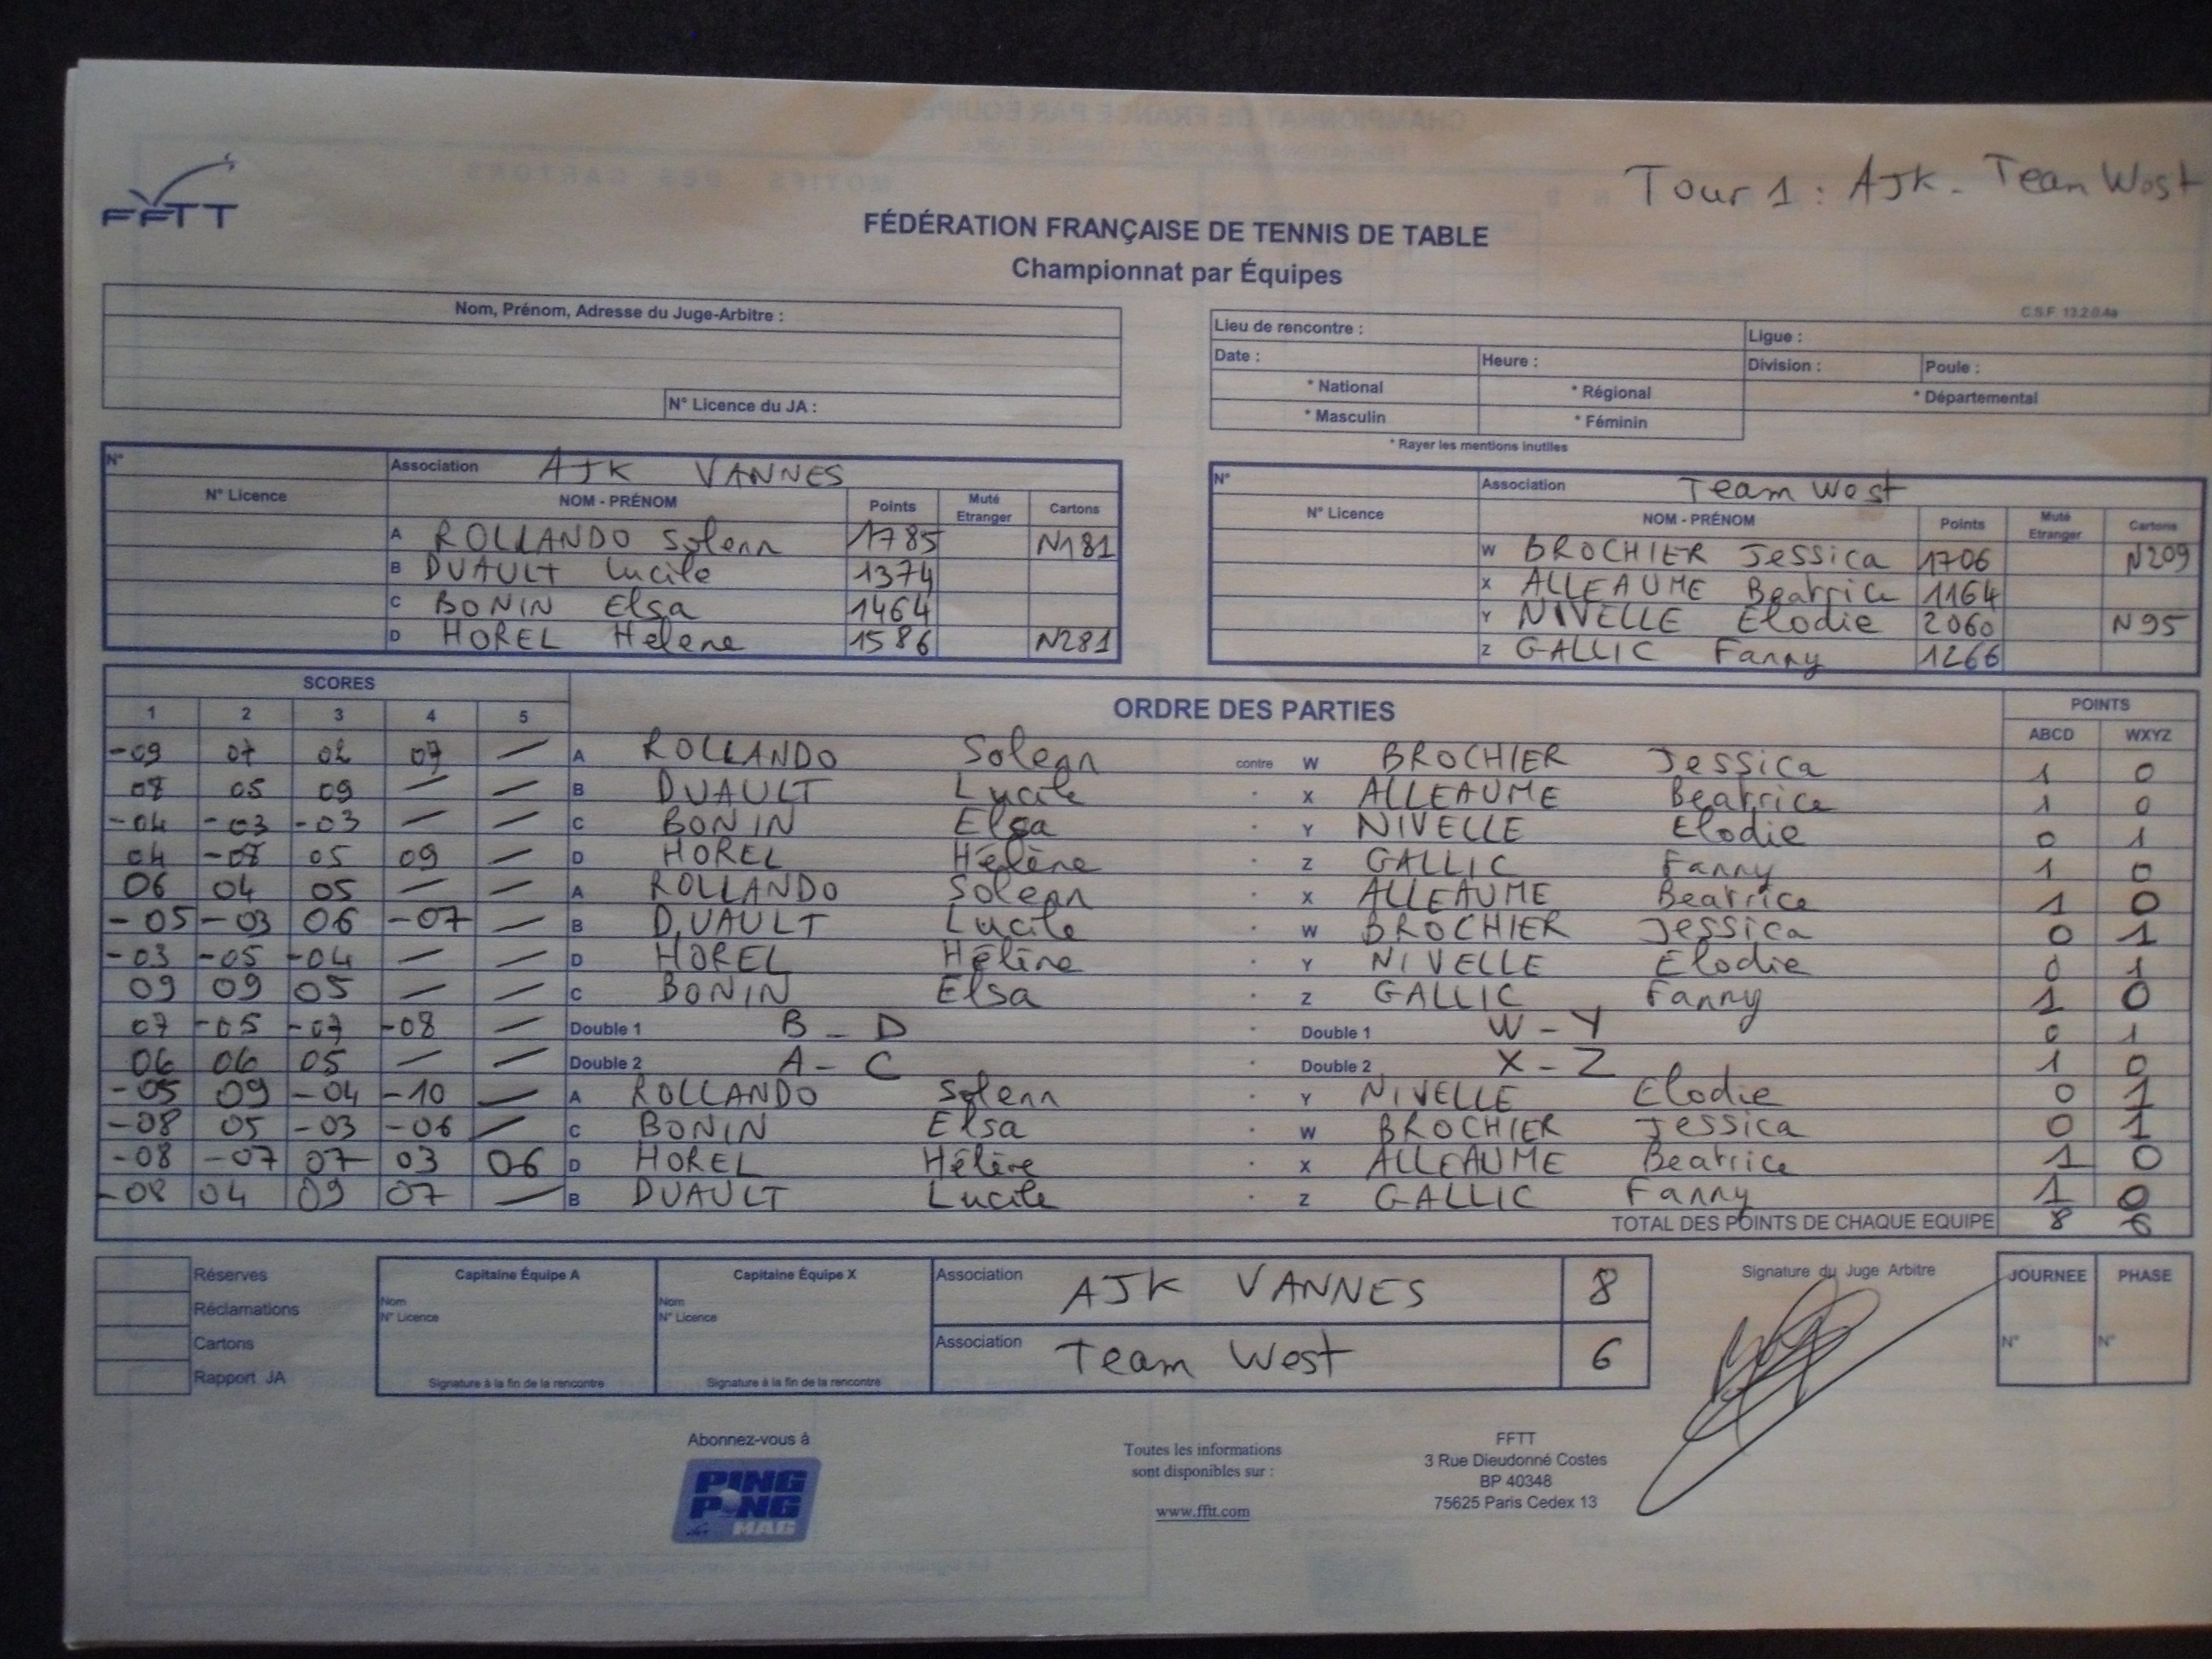 Tour 1 : AJK - Team West
FFTT
FÉDÉRATION FRANÇAISE DE TENNIS DE TABLE
Championnat par Équipes
C.S.F. 13.2.0.4a
Nom, Prénom, Adresse du Juge-Arbitre :
N° Licence du JA :
Lieu de rencontre : Ligue :
Date : Heure : Division : Poule :
* National * Régional * Départemental
* Masculin * Féminin
* Rayer les mentions inutiles
N° Association AJK VANNES
N° Licence NOM - PRÉNOM Points Muté Etranger Cartons
A ROLLANDO Solenn 1785 N181
B DUAULT Lucile 1374
C BONIN Elsa 1464
D HOREL Hélène 1586 N281
N° Association Team West
N° Licence NOM - PRÉNOM Points Muté Etranger Cartons
W BROCHIER Jessica 1706 N209
X ALLEAUME Beatrice 1164
Y NIVELLE Elodie 2060 N95
Z GALLIC Fanny 1266
SCORES ORDRE DES PARTIES POINTS
1 2 3 4 5 ABCD WXYZ
-09 07 02 07 — A ROLLANDO Solenn contre W BROCHIER Jessica 1 0
08 05 09 — — B DUAULT Lucile X ALLEAUME Beatrice 1 0
-04 -03 -03 — — C BONIN Elsa Y NIVELLE Elodie 0 1
04 -08 05 09 — D HOREL Hélène Z GALLIC Fanny 1 0
06 04 05 — — A ROLLANDO Solenn X ALLEAUME Beatrice 1 0
-05 -03 06 -07 — B DUAULT Lucile W BROCHIER Jessica 0 1
-03 -05 -04 — — D HOREL Hélène Y NIVELLE Elodie 0 1
09 09 05 — — C BONIN Elsa Z GALLIC Fanny 1 0
07 -05 -07 -08 — Double 1 B - D Double 1 W - Y 0 1
06 06 05 — — Double 2 A - C Double 2 X - Z 1 0
-05 09 -04 -10 — A ROLLANDO Solenn Y NIVELLE Elodie 0 1
-08 05 -03 -06 — C BONIN Elsa W BROCHIER Jessica 0 1
-08 -07 07 03 06 D HOREL Hélène X ALLEAUME Beatrice 1 0
-08 04 09 07 — B DUAULT Lucile Z GALLIC Fanny 1 0
TOTAL DES POINTS DE CHAQUE EQUIPE 8 6
Réserves
Réclamations
Cartons
Rapport JA
Capitaine Équipe A
Nom
N° Licence
Signature à la fin de la rencontre
Capitaine Équipe X
Nom
N° Licence
Signature à la fin de la rencontre
Association AJK VANNES 8
Association Team West 6
Signature du Juge Arbitre
JOURNEE PHASE
N° N°
Abonnez-vous à
PING
PONG
MAG
Toutes les informations
sont disponibles sur :
www.fftt.com
FFTT
3 Rue Dieudonné Costes
BP 40348
75625 Paris Cedex 13